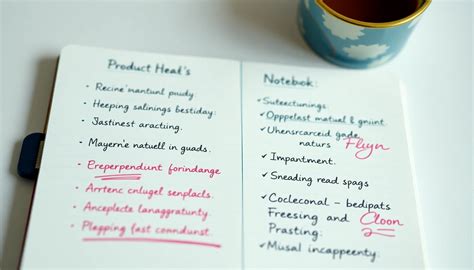 Product Heat's
Recine'nantunl puidy
Heeping salinings bestiday:
Jastinest aractiing.
Mayernè natuell in guads.
Ereperpendunt forindange
Arrtenc cnlugel senplacls.
Anceplacte lanaggratunty.
Plepping fast coundunst.
Notebook:
Suteectunings.
Oppplelast matual & gniint.
Uhensrcarceid gade
naturs Flyyn
Impantment.
Sneading read spags
Cocleconal – bedipats
Freesing and Cloon
Prasting:
Musal incappeenty: